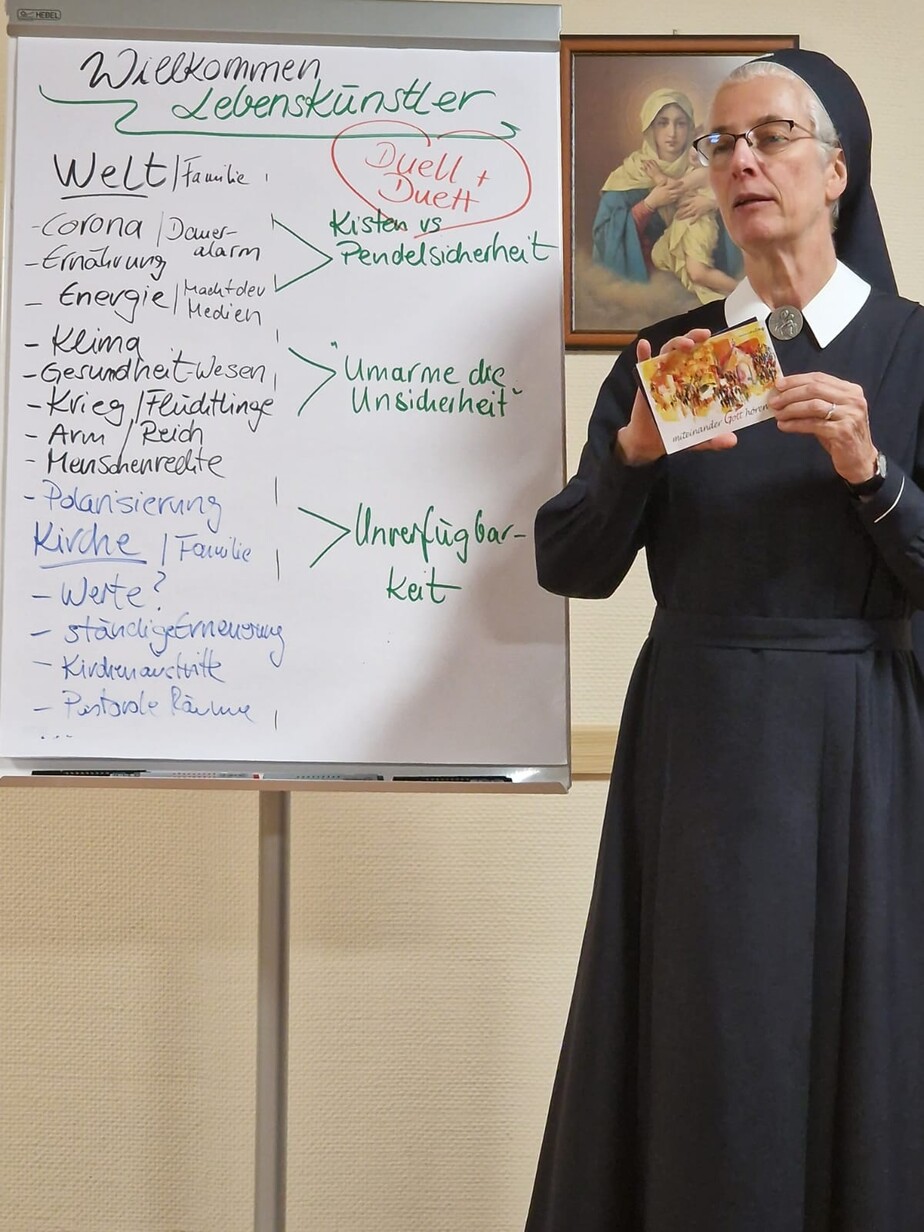 HEBEL
Willkommen
Lebenskünstler
Duell +
Duett
Welt / Familie
- Corona / Dauer-
alarm
- Ernährung
- Energie / Macht der
Medien
Kisten vs
Pendelsicherheit
- Klima
- Gesundheit-Wesen
- Krieg / Flüchtlinge
- Arm / Reich
- Menschenrechte
"Umarme die
Unsicherheit"
- Polarisierung
Kirche / Familie
- Werte?
- ständige Erneuerung
- Kirchenaustritte
- Pastorale Räume
...
Unverfügbar-
keit
miteinander Gott hören